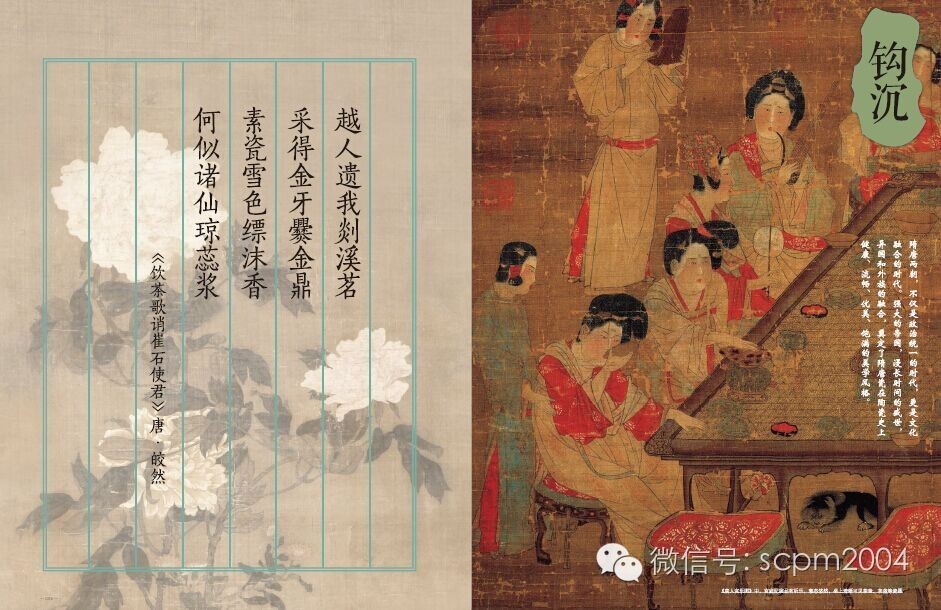 越人遗我剡溪茗
采得金牙爨金鼎
素瓷雪色缥沫香
何似诸仙琼蕊浆
《饮茶歌诮崔石使君》唐·皎然
钩沉
隋唐两朝，不仅是政治统一的时代，更是文化
融合的时代。强大的帝国，漫长时间的盛世，
异国和外族的融合，奠定了隋唐瓷在陶瓷史上
健康、流畅、优美、饱满的美学风格。
微信号: scpm2004